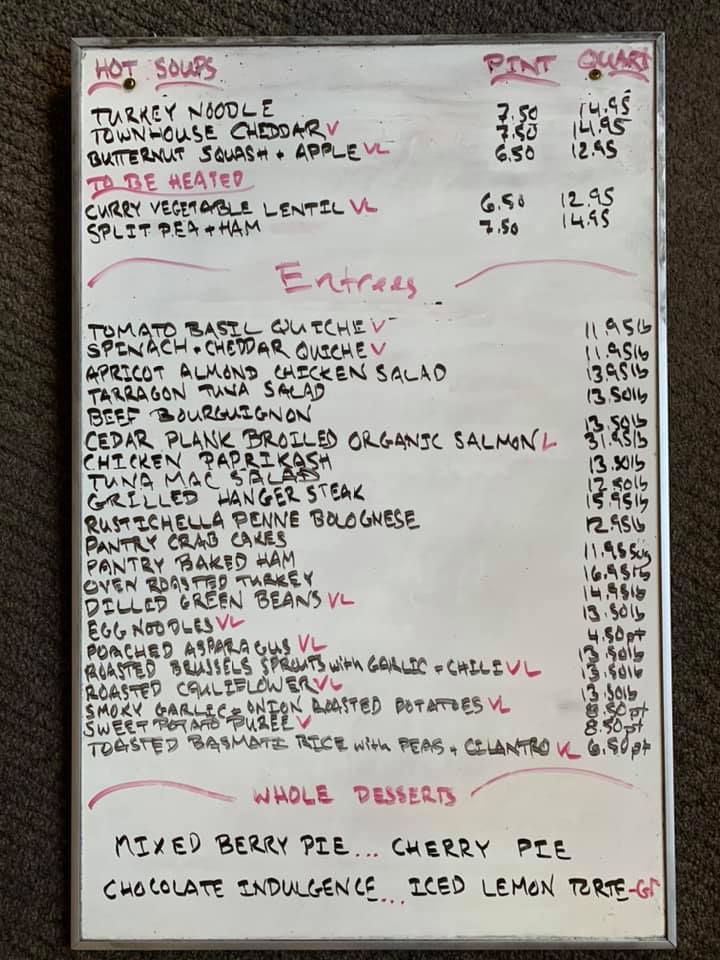 HOT SOUPS PINT QUART
TURKEY NOODLE 7.50 14.95
TOWNHOUSE CHEDDAR V 7.50 14.95
BUTTERNUT SQUASH + APPLE VL 6.50 12.95
TO BE HEATED
CURRY VEGETABLE LENTIL VL 6.50 12.95
SPLIT PEA + HAM 7.50 14.95
Entrees
TOMATO BASIL QUICHE V 11.95lb
SPINACH + CHEDDAR QUICHE V 11.95lb
APRICOT ALMOND CHICKEN SALAD 13.95lb
TARRAGON TUNA SALAD 13.50lb
BEEF BOURGUIGNON 13.50lb
CEDAR PLANK BROILED ORGANIC SALMON L 31.95lb
CHICKEN PAPRIKASH 13.50lb
TUNA MAC SALAD 12.50lb
GRILLED HANGER STEAK 15.95lb
RUSTICHELLA PENNE BOLOGNESE 12.95lb
PANTRY CRAB CAKES 11.95
PANTRY BAKED HAM 16.95lb
OVEN ROASTED TURKEY 14.95lb
DILLED GREEN BEANS VL 13.50lb
EGG NOODLES VL 4.50pt
POACHED ASPARAGUS VL 13.50lb
ROASTED BRUSSELS SPROUTS with GARLIC + CHILI VL 13.50lb
ROASTED CAULIFLOWER VL 13.50lb
SMOKY GARLIC + ONION ROASTED POTATOES VL 8.50 pt
SWEET POTATO PUREE V 8.50 pt
TOASTED BASMATI RICE with PEAS + CILANTRO VL 6.50pt
WHOLE DESSERTS
MIXED BERRY PIE... CHERRY PIE
CHOCOLATE INDULGENCE... ICED LEMON TORTE-GF